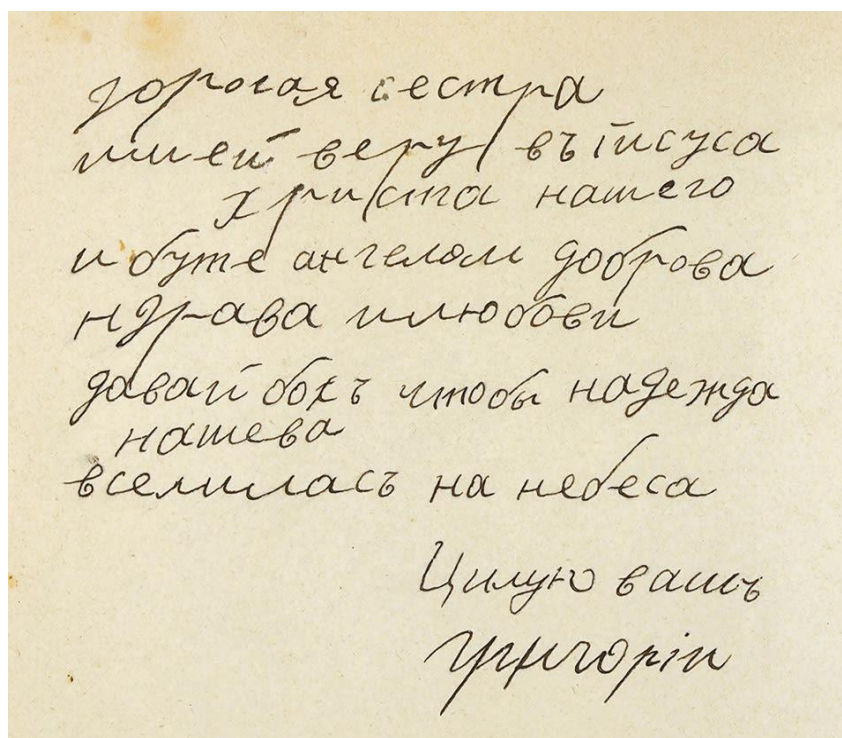 дорогая сестра
имей веру въ Iисуса
христа нашего
и буте ангелом доброва
ндрава и любови
давай бохъ чтобы надежда
нашева
вселиласъ на небеса
Цилую вашъ
Григорiи